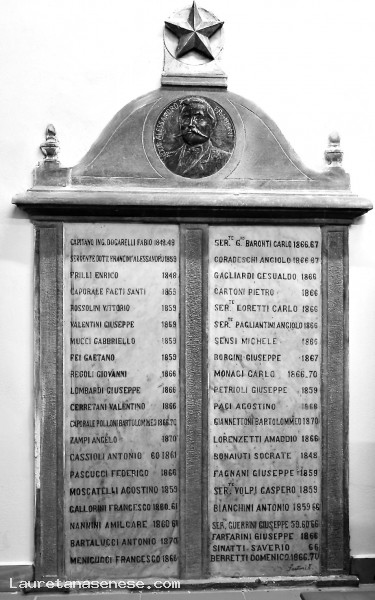 ALESSANDRO FRANCINI
CAPITANO ING. DOGARELLI FABIO 1848.49
SERGENTE DOTT. FRANCINI ALESSANDRO 1859
FRILLI ENRICO 1848
CAPORALE FAETI SANTI 1859
ROSSOLINI VITTORIO 1859
VALENTINI GIUSEPPE 1859
MUCCI GABBRIELLO 1859
FEI GAETANO 1859
REGOLI GIOVANNI 1866
LOMBARDI GIUSEPPE 1866
CERRETANI VALENTINO 1866
CAPORALE POLLONI BARTOLOMMEO 1866.70
ZAMPI ANGELO 1870
CASSIOLI ANTONIO 60 1861
PASCUCCI FEDERIGO 1866
MOSCATELLI AGOSTINO 1859
GALLORINI FRANCESCO 1860.61
NANNINI AMILCARE 1860 61
BARTALUCCI ANTONIO 1870
MENICUCCI FRANCESCO 1866
SER.TE G. BARONTI CARLO 1866.67
CORADESCHI ANGIOLO 1866 67
GAGLIARDI GESUALDO 1866
CARTONI PIETRO 1866
SER.TE LORETTI CARLO 1866
SER.TE PAGLIANTINI ANGIOLO 1866
SENSI MICHELE 1866
BORGINI GIUSEPPE 1867
MONACI CARLO 1866.70
PETRIOLI GIUSEPPE 1859
PACI AGOSTINO 1868
GIANNETTONI BARTOLOMMEO 1870
LORENZETTI AMADDIO 1866
BONAIUTI SOCRATE 1848
FAGNANI GIUSEPPE 1859
SER.TE VOLPI CASPERO 1859
BIANCHINI ANTONIO 1859 66
SER. GUERRINI GIUSEPPE 59.60 66
FARFARINI GIUSEPPE 1866
SINATTI SAVERIO 66
BERRETTI DOMENICO 1866.70
Lauretanasenese.com